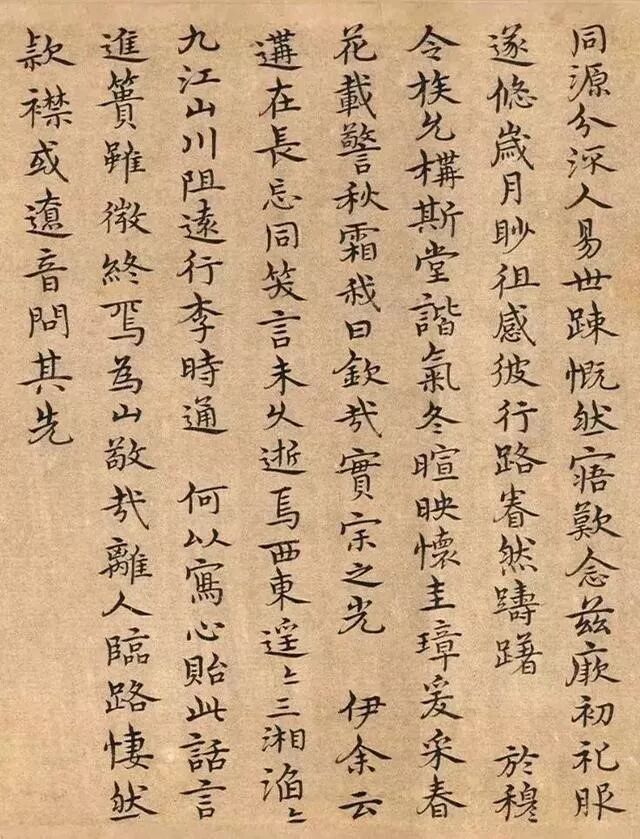 同源分泒人易世踈慨然寤歎念兹厥初礼服
遂悠歲月眇徂感彼行路眷然躊躇　於穆
令族允構斯堂諧氣冬暄映懷圭璋爰采春
花載警秋霜我曰欽哉實宗之光　伊余云
遘在長忘同笑言未久逝焉西東遥〻三湘滔〻
九江山川阻遠行李時通　何以寫心貽此話言
進簣雖微終焉為山敬哉離人臨路悽然
款襟或遼音問其先